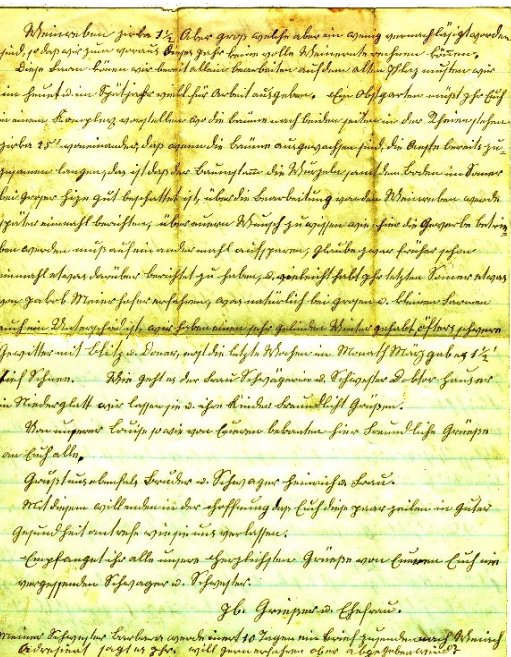 Weinreben zirka 1½ Aker groß welche aber ein wenig vernachläßigt worden
sind, so daß wir zum voraus dieses Jahr keine volle Weinernte nehmen können.
Diese Farm können wir bereit allein bearbeiten auf dem alten Platz mußten wir
im Heuet u. im Spätjahr viel für Arbeit ausgeben. Ein Obstgarten müßt Ihr Euch
in einem vorstellen wo die Bäume nach beiden seiten in der stehen
zirka 25' voneinander, daß wenn die Bäume ausgewachsen sind, die Aeste bereits zu-
sammen langen, das ist daß der Baumstam die Wurzeln samt dem Boden im Somer
bei großer Hize gut beschattet ist, über die Bearbeitung von den Weinreben werde
später einmahl berichten, über euern Wunsch zu wissen wie hier die Gewerbe betrie-
ben werden muß auf ein ander mahl aufsparen, Glaube zwar früher schon
einmahl etwas darüber berichtet zu haben, u. vieleicht habt Ihr letzten Somer etwas
von Jakob Meierhofer erfahren, was natürlich bei großen u. kleinen Farmen
auch ein Unterschied ist wir haben einen sehr gelinden Winter gehabt öfters schwere
Gewitter mit Blitz u. Doner, erst die letzte Wochen im Monath März gab es 1½'
tief Schnee. Wie geht es der Frau Schwägerin u. Schwester Doktor Hauser
in Niederglatt wir lassen sie u. ihre Kinder Freundlicht Grüßen.
Von unserer Louise so wie von Eueren bekanten hier Freundliche Grüße
an Euch alle,
Grüßt uns ebenfals Bruder u. Schwager Heinrich u. Frau.
Mit diesem will enden in der Hoffnung daß Euch diese paar zeilen in guter
Gesundheit antrefe wie sie uns verlassen.
Empfanget ihr alle unsere Herzlichsten Grüeße von Eueren Euch nie
vergessenden Schwager u. Schwester.
Jb. Grießer u. Ehefrau.
Meiner Schwester Barbara werde inert 10 Tagen ein Brief zusenden nach Weiach
Adresiert sagt es Ihr. will gern erfahren ober abgegeben wird?